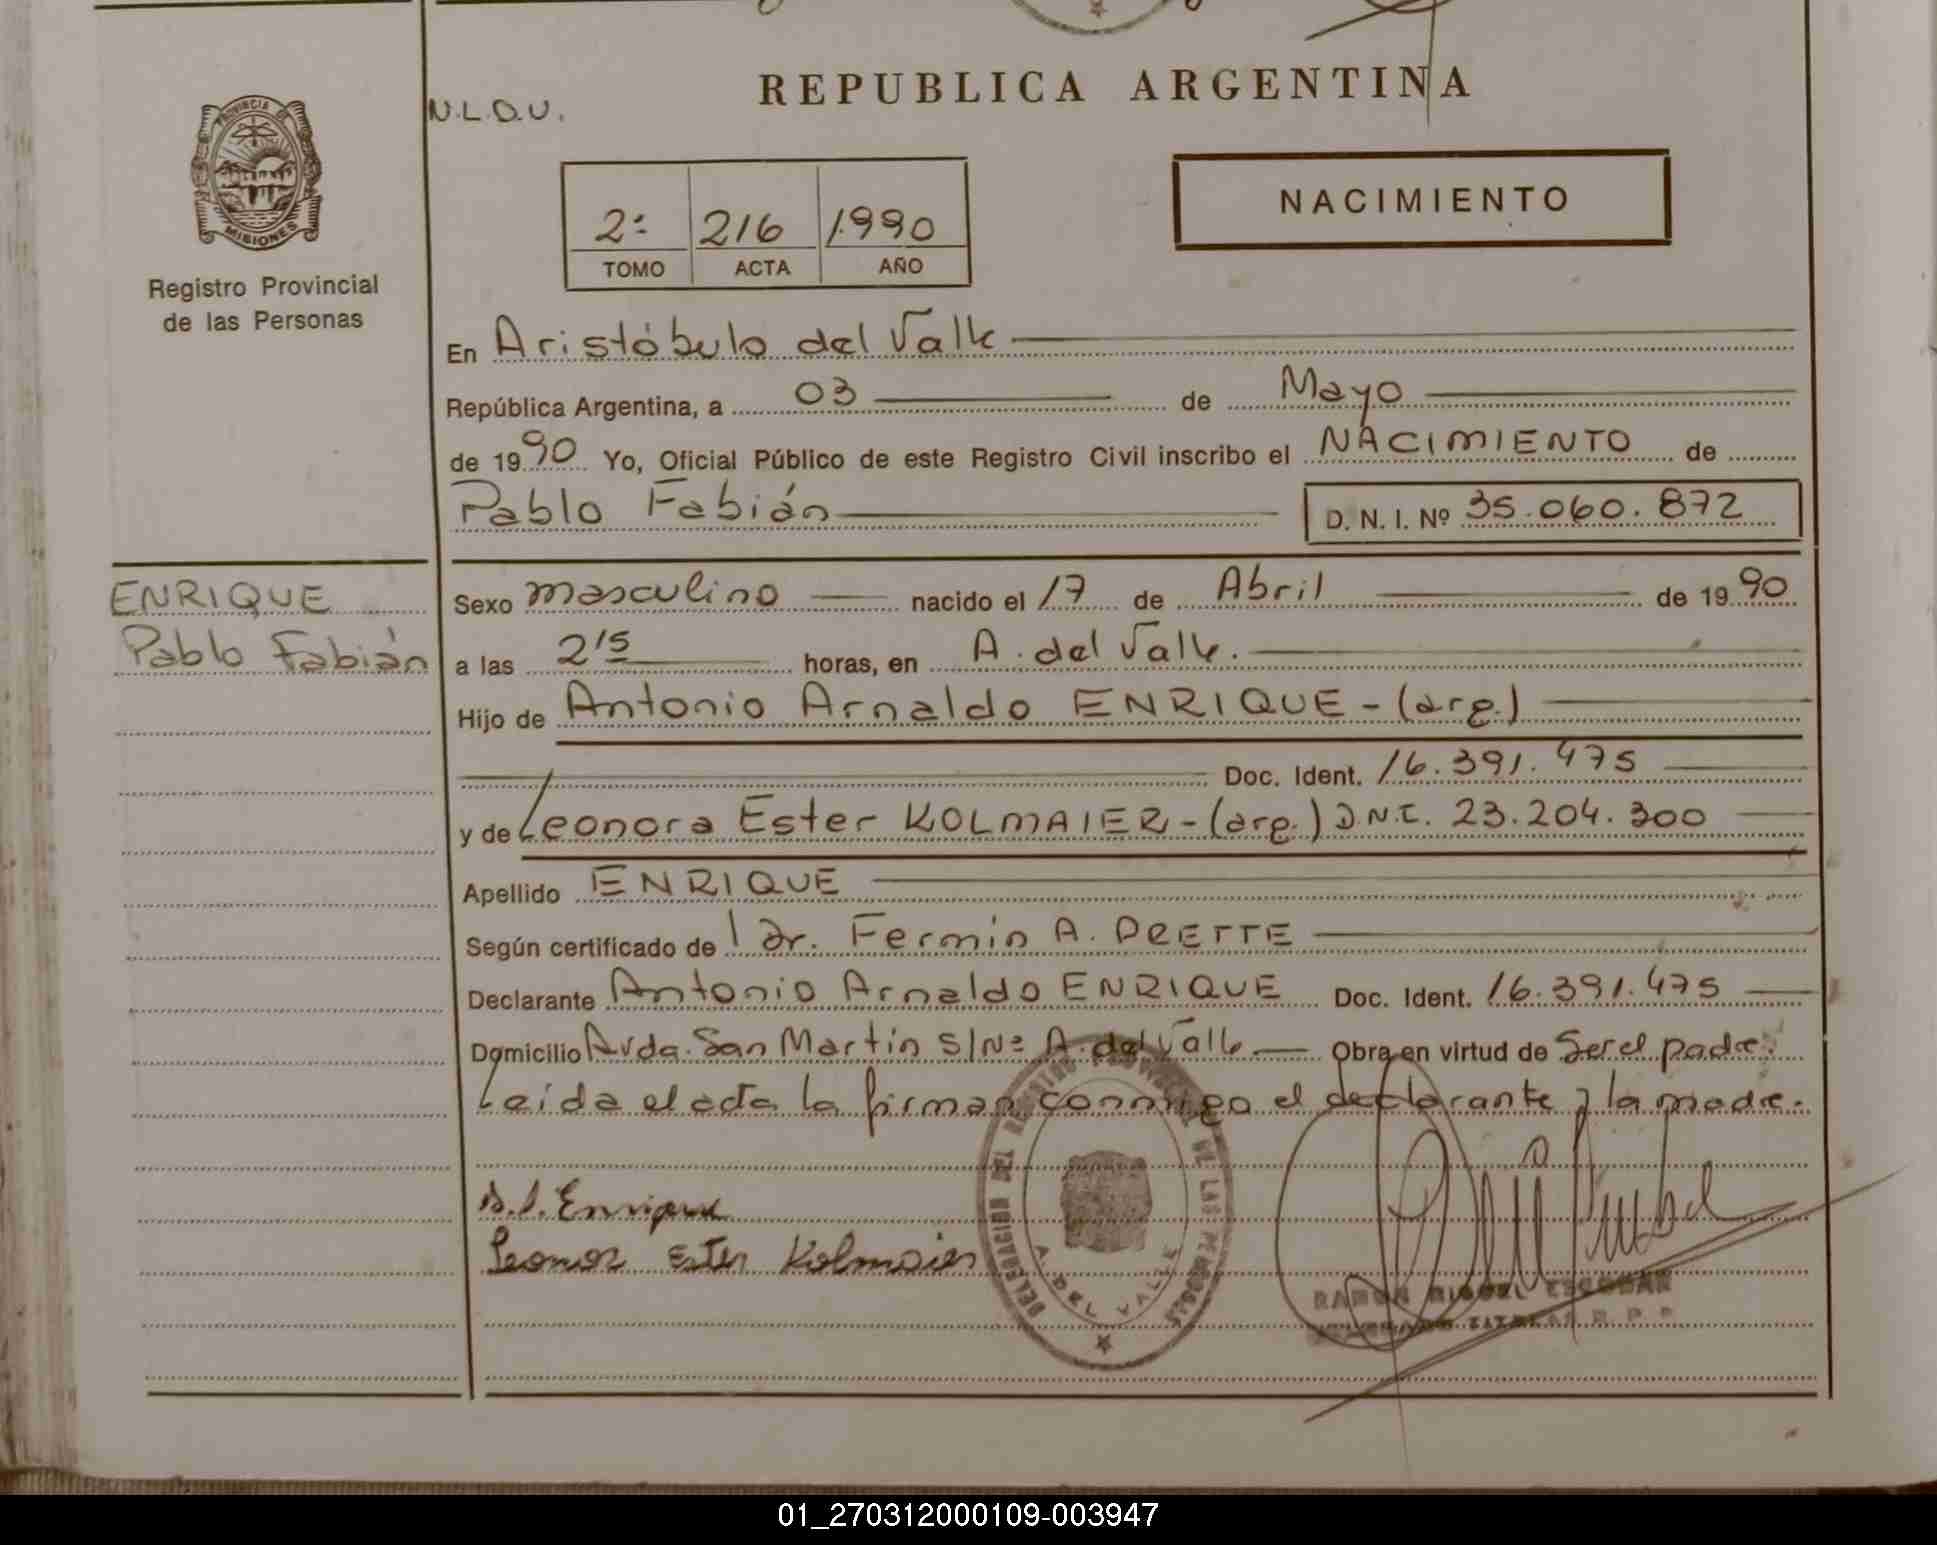 REPUBLICA ARGENTINA
N.L.D.U.
PROVINCIA DE
MISIONES
Registro Provincial
de las Personas
NACIMIENTO
2º 216 1990
TOMO ACTA AÑO
En Aristóbulo del Valle
República Argentina, a 03 de Mayo
de 1990 Yo, Oficial Público de este Registro Civil inscribo el NACIMIENTO de
Pablo Fabián D. N. I. Nº 35.060.872
ENRIQUE
Pablo Fabián
Sexo masculino nacido el 17 de Abril de 1990
a las 2 15 horas, en A. del Valle.
Hijo de Antonio Arnaldo ENRIQUE - (arg.)
Doc. Ident. 16.391.475
y de Leonora Ester KOLMAIER - (arg.) D.N.I. 23.204.300
Apellido ENRIQUE
Según certificado de Dr. Fermín A.
Declarante Antonio Arnaldo ENRIQUE Doc. Ident. 16.391.475
Domicilio Avda. San Martín S/Nº A. del Valle Obra en virtud de Ser el padre.
Leída el acta la firman conmigo el declarante y la madre.
Enrique
Leonor Ester Kolmaier
DELEGACION DEL REGISTRO PROVINCIAL DE LAS PERSONAS
A. DEL VALLE
RAMON MIGUEL ESCOBAR
TITULAR R. P. P.
01_270312000109-003947